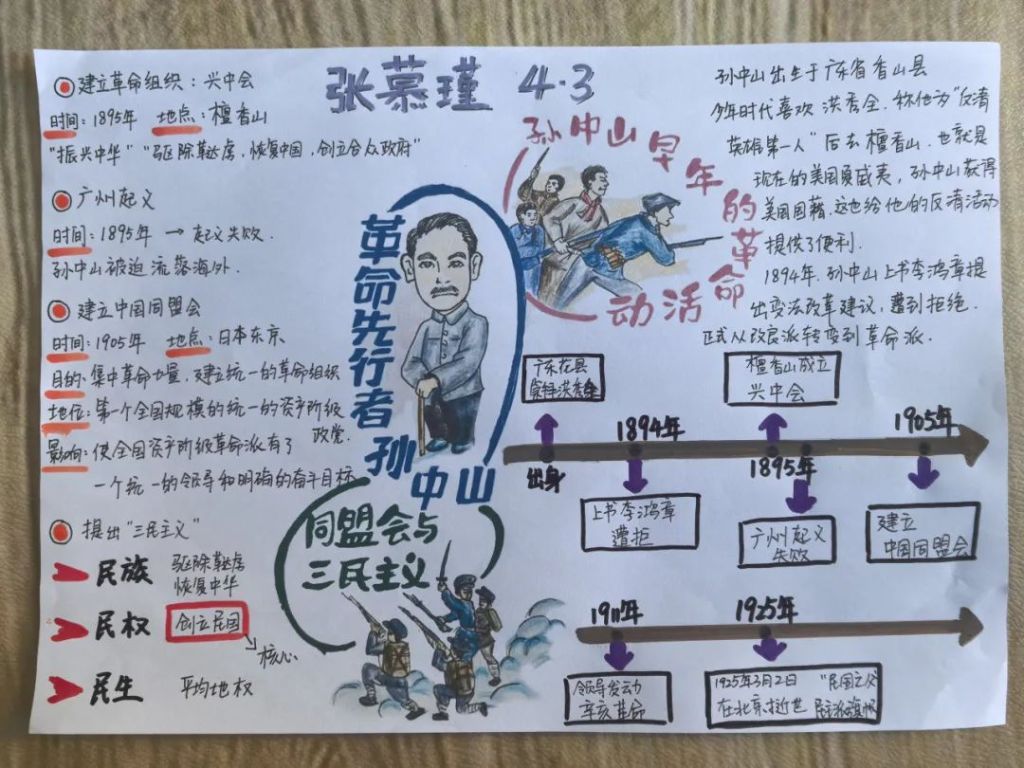 张慕瑾 4·3
建立革命组织：兴中会
时间：1895年 地点：檀香山
"振兴中华" "驱除鞑虏，恢复中国，创立合众政府"
广州起义
时间：1895年 → 起义失败.
孙中山被迫流落海外.
建立中国同盟会
时间：1905年 地点：日本东京
目的：集中革命力量，建立统一的革命组织
地位：第一个全国规模的统一的资产阶级
政党.
影响：使全国资产阶级革命派有了
一个统一的领导和明确的奋斗目标
提出"三民主义"
民族 驱除鞑虏
恢复中华
民权 创立民国
核心
民生 平均地权
革命先行者孙中山
同盟会与
三民主义
孙中山早年的革命活动
孙中山出生于广东省香山县
少年时代喜欢洪秀全，称他为"反清
英雄第一人" 后去檀香山，也就是
现在的美国夏威夷，孙中山获得
美国国籍，这也给他的反清活动
提供了便利.
1894年，孙中山上书李鸿章提
出变法改革建议，遭到拒绝.
正式从改良派转变到革命派.
广东花县
洪秀全
檀香山成立
兴中会
出身
1894年
1895年
1905年
上书李鸿章
遭拒
广州起义
失败
建立
中国同盟会
1911年
1925年
领导发动
辛亥革命
1925年3月2日 "民国之父
在北京逝世